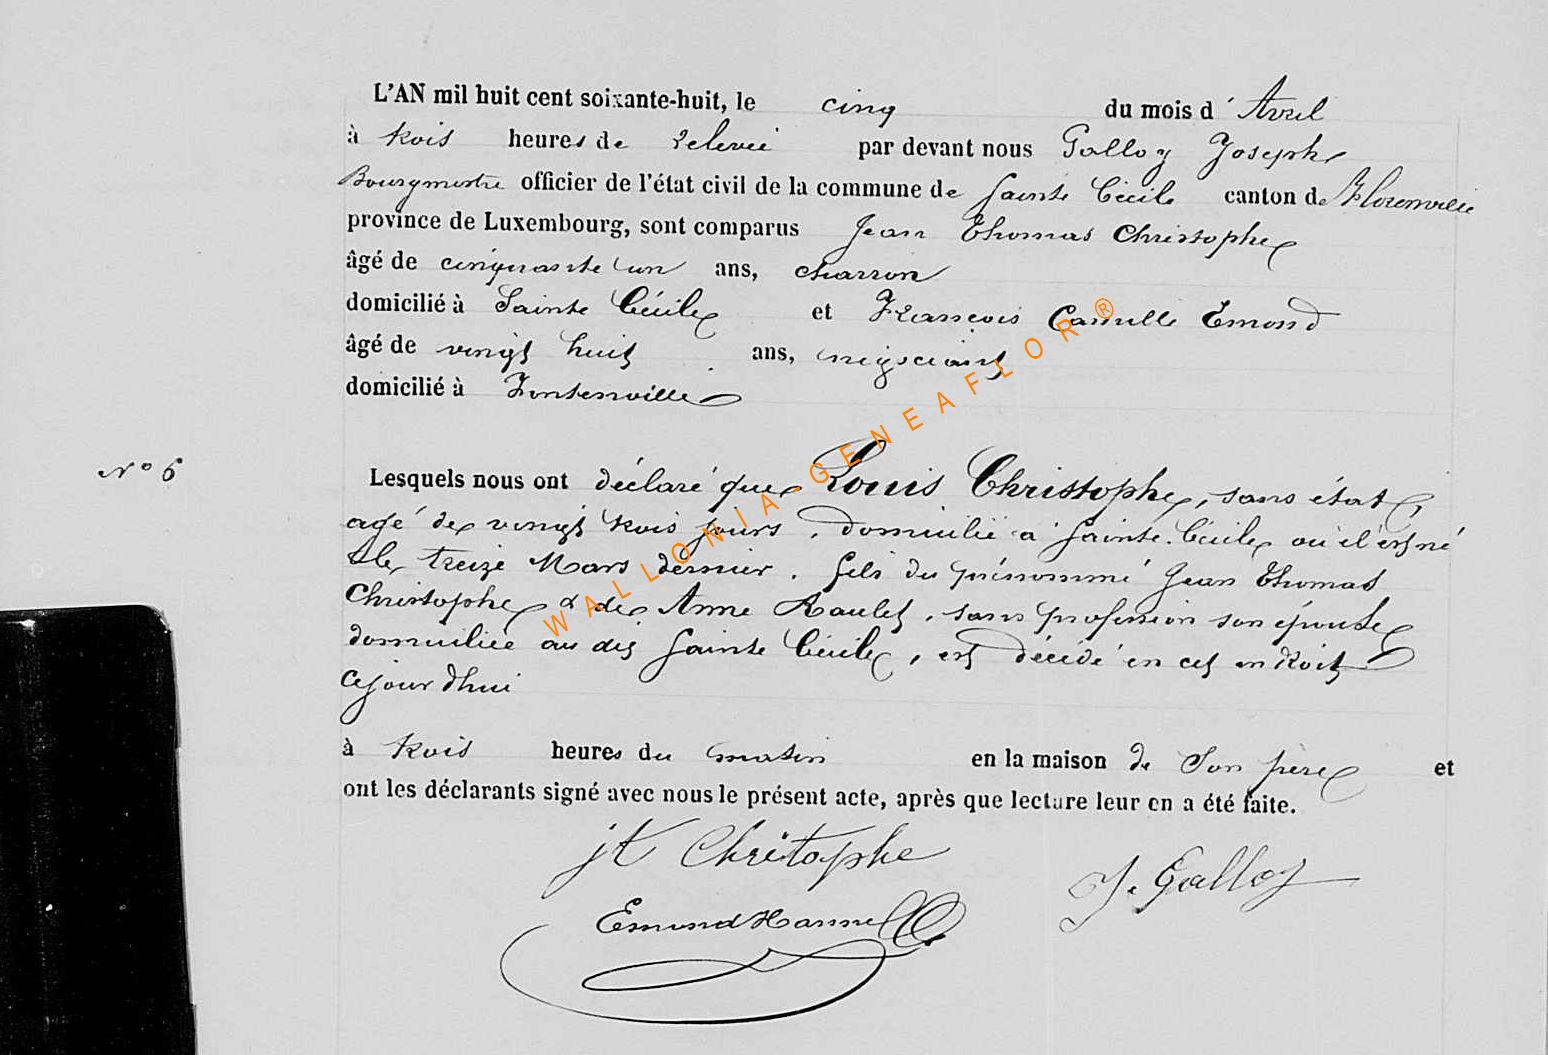 L'AN mil huit cent soixante-huit, le cinq du mois d'Avril
à trois heures de relevée par devant nous Galloy Joseph
Bourgmestre officier de l'état civil de la commune de Sainte Cécile canton de Florenville
province de Luxembourg, sont comparus Jean Thomas Christophe
âgé de cinquante un ans, charron
domicilié à Sainte Cécile et François Camille Emond
âgé de vingt huit ans, négociant
domicilié à Fontenoille
N° 6
Lesquels nous ont déclaré que Louis Christophe, sans état,
agé de vingt trois jours, domicilié à Sainte-Cécile où il est né
le treize Mars dernier, fils du prénommé Jean Thomas
Christophe & de Anne Raulet, sans profession son épouse
domiciliée au dit Sainte Cécile, est décédé en cet endroit
cejourdhui
à trois heures du matin en la maison de Son père et
ont les déclarants signé avec nous le présent acte, après que lecture leur en a été faite.
jt Christophe
J. Galloy
Emond
WALLONIA-GENEAFLOR®